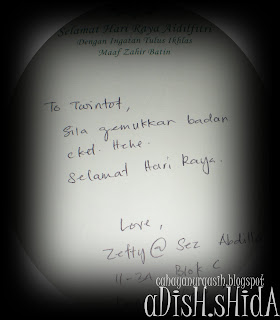 Selamat Hari Raya Aidilfitri
Dengan Ingatan Tulus Ikhlas
Maaf Zahir Batin
To Twintot,
Sila gemukkan badan
cket. Hehe.
Selamat Hari Raya.
Love,
Zetty @ Sez Abdullah
4-3A Blok C
cahayanyraasth.blogspot
aDisH.sHidA